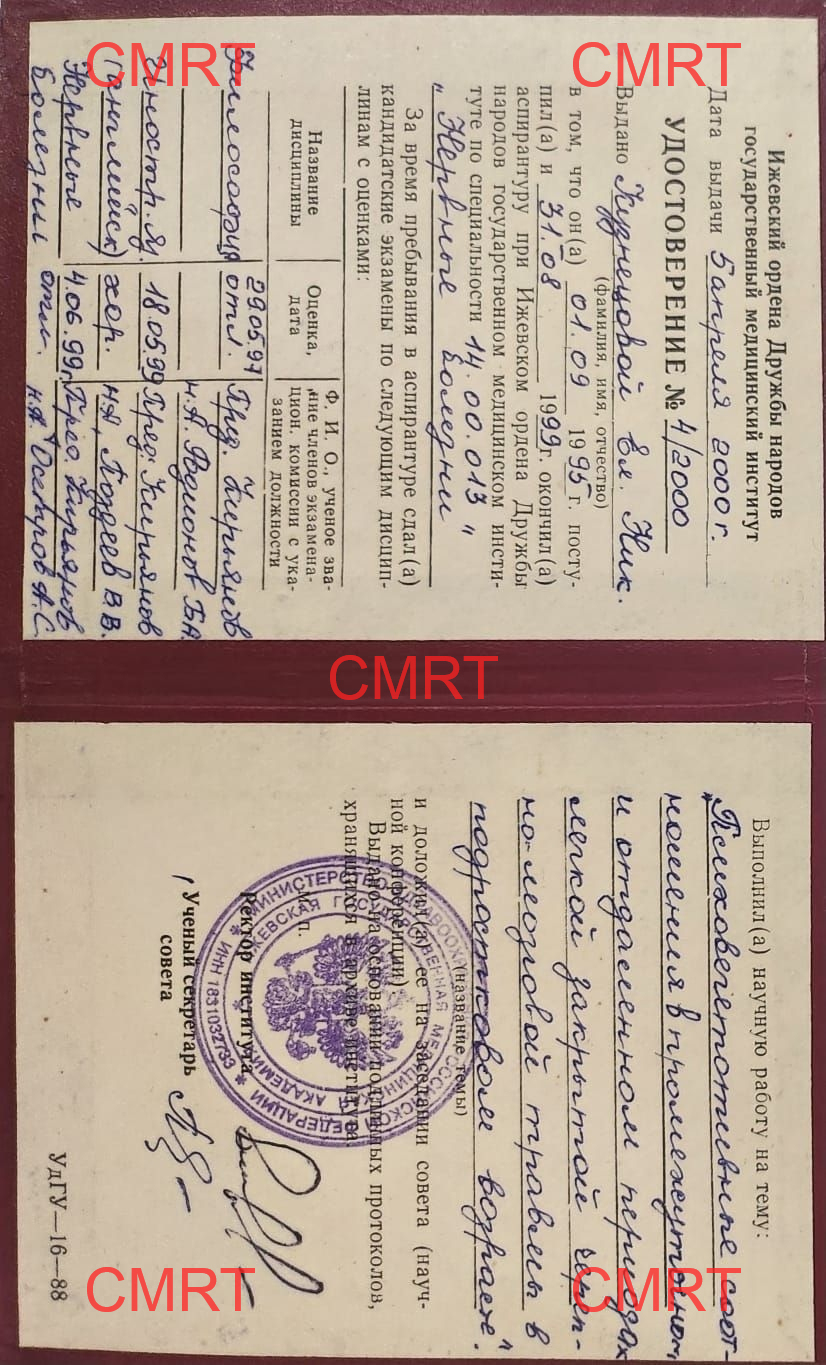 Ижевский ордена Дружбы народов
государственный медицинский институт
Дата выдачи 5 апреля 2000 г.
УДОСТОВЕРЕНИЕ № 4/2000
Выдано Кузнецовой Ел. Ник.
(фамилия, имя, отчество)
в том, что он(а) 01.09 1995 г. посту-
пил(а) и 31.08 1999 г. окончил(а)
аспирантуру при Ижевском ордена Дружбы
народов государственном медицинском инсти-
туте по специальности 14.00.013 "
„Нервные болезни
За время пребывания в аспирантуре сдал(а)
кандидатские экзамены по следующим дисцип-
линам с оценками:
Название дисциплины
Оценка, дата
Ф. И. О., ученое зва-
ние членов экзамена-
цион. комиссии с ука-
занием должности
Философия 29.05.97 отл. Пред. Кирьянов
Н.А. Родионов Б.А.
Иностр. яз. 18.05.99 Пред. Кирьянов
(английск) хор. Н.А, Поздеев В.В.
Нервные 4.06.99г. Пред. Кирьянов
болезни отл. Н.А. Осетров А.С.
Выполнил(а) научную работу на тему:
„Психовегетативные соот-
ношения в промежуточном
и отдаленном периодах
легкой закрытой череп-
но-мозговой травмы в
подростковом возрасте".
(название темы)
и доложил(а) ее на заседании совета (науч-
ной конференции)
Выдано на основании подлинных протоколов,
хранящихся в архиве института
М. п.
Ректор института
Ученый секретарь
совета
УдГУ—16—88
ИНН 1831032733
CMRT
CMRT
CMRT
CMRT
CMRT